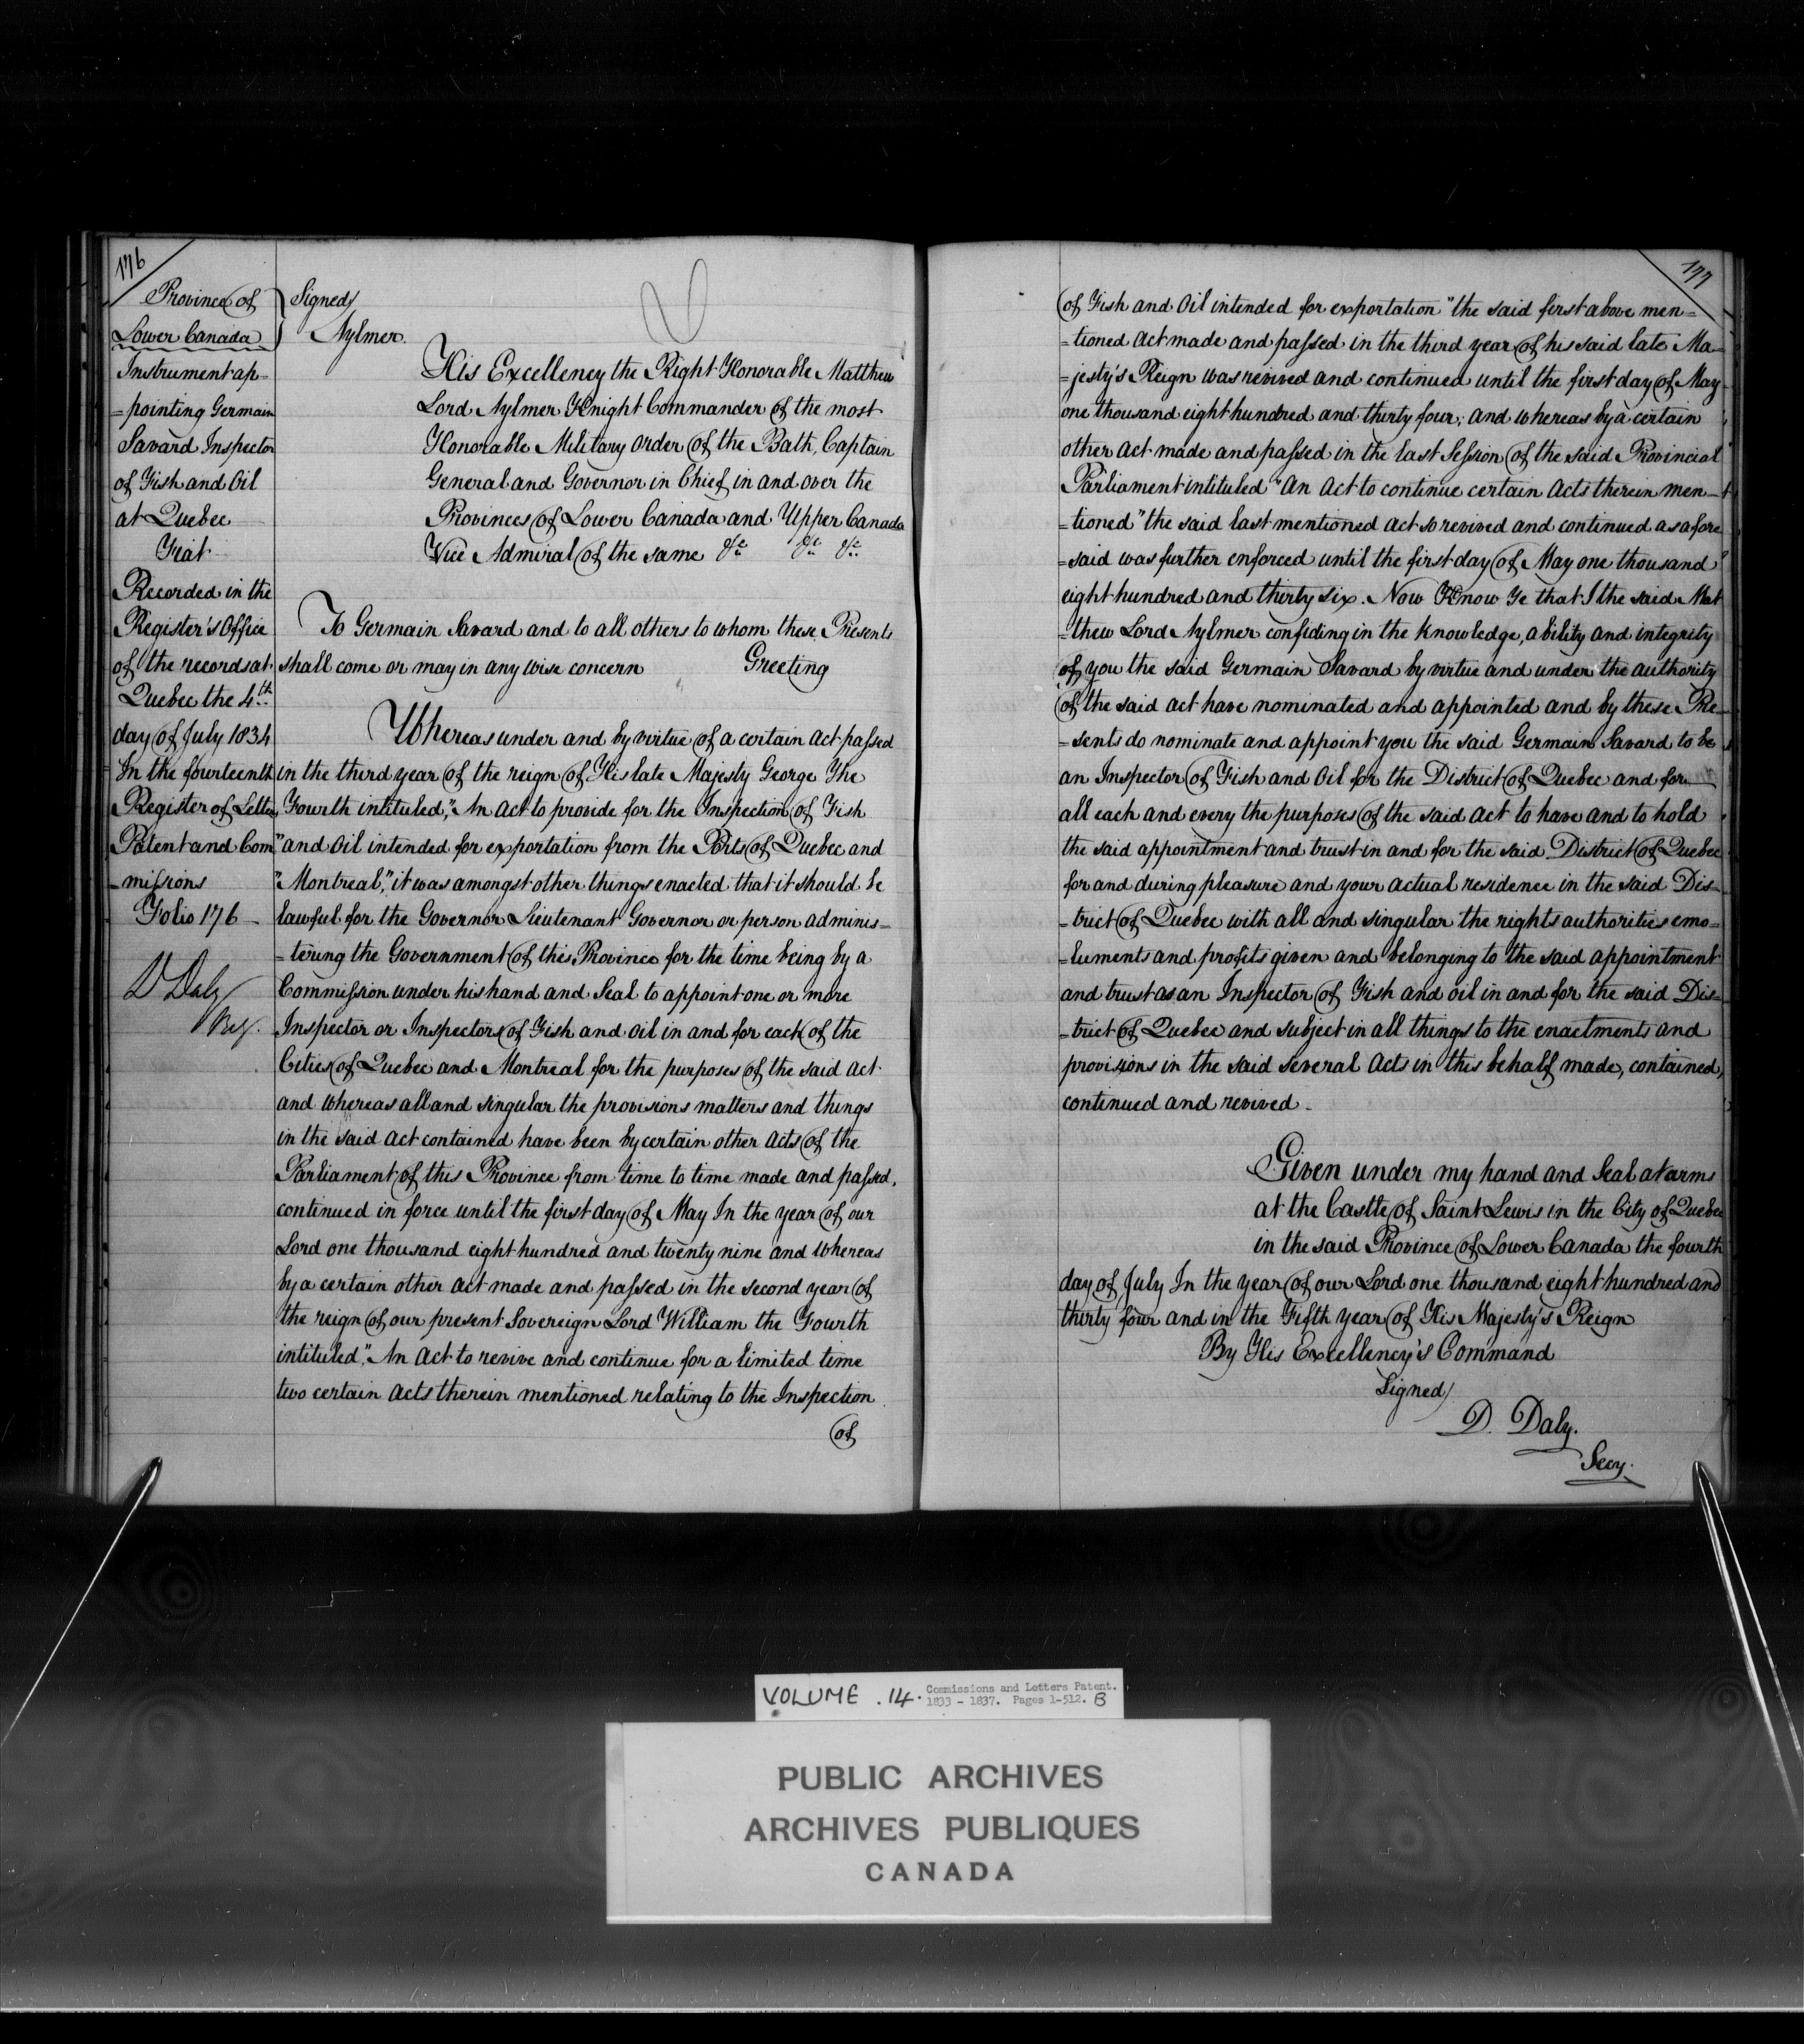 176
Province of
Lower Canada
Instrument ap=
=pointing Germain
Savard Inspector
of Fish and Oil
at Quebec
Fiat
Recorded in the
Register's Office
of the records at
Quebec the 4th
day of July 1834
In the fourteenth
Register of Letters
Patent and Com
=missions
Folio 176
D Daly
Reg.
Signed/
Aylmer.
His Excellency the Right Honorable Matthew
Lord Aylmer Knight Commander of the most
Honorable Military Order of the Bath, Captain
General and Governor in Chief in and over the
Provinces of Lower Canada and Upper Canada
Vice Admiral of the same &c &c &c
To Germain Savard and to all others to whom these Presents
shall come or may in any wise concern Greeting
Whereas under and by virtue of a certain Act passed
in the third year of the reign of His late Majesty George The
Fourth intituled, "An Act to provide for the Inspection of Fish
"and Oil intended for exportation from the Ports of Quebec and
"Montreal," it was amongst other things enacted that it should be
lawful for the Governor Lieutenant Governor or person adminis=
=tering the Government of this Province for the time being by a
Commission under his hand and Seal to appoint one or more
Inspector or Inspectors of Fish and Oil in and for each of the
Cities of Quebec and Montreal for the purposes of the said Act
and whereas all and singular the provisions matters and things
in the said Act contained have been by certain other Acts of the
Parliament of this Province from time to time made and passed,
continued in force until the first day of May In the year of our
Lord one thousand eight hundred and twenty nine and Whereas
by a certain other Act made and passed in the second year of
the reign of our present Sovereign Lord William the Fourth
intituled, "An Act to revive and continue for a limited time
two certain Acts therein mentioned relating to the Inspection
of
177
of Fish and Oil intended for exportation" the said first above men=
=tioned Act made and passed in the third year of his said late Ma=
=jesty's Reign was revived and continued until the first day of May
one thousand eight hundred and thirty four; and whereas by a certain
other Act made and passed in the last Session of the said Provincial
Parliament intituled "An Act to continue certain Acts therein men=
=tioned" the said last mentioned Act so revived and continued as afore
=said was further enforced until the first day of May one thousand
eight hundred and thirty six. Now Know Ye that I the said Mat
=thew Lord Aylmer confiding in the knowledge, ability and integrity
of you the said Germain Savard by virtue and under the authority
of the said Act have nominated and appointed and by these Pre=
=sents do nominate and appoint you the said Germain Savard to be
an Inspector of Fish and Oil for the District of Quebec and for
all each and every the purposes of the said Act to have and to hold
the said appointment and trust in and for the said District of Quebec
for and during pleasure and your actual residence in the said Dis=
=trict of Quebec with all and singular the rights authorities emo=
=luments and profits given and belonging to the said appointment
and trust as an Inspector of Fish and Oil in and for the said Dis=
=trict of Quebec and subject in all things to the enactments and
provisions in the said several Acts in this behalf made, contained,
continued and revived.
Given under my hand and Seal at arms
at the Castle of Saint Lewis in the City of Quebec
in the said Province of Lower Canada the fourth
day of July In the year of our Lord one thousand eight hundred and
thirty four and in the Fifth year of His Majesty's Reign
By His Excellency's Command
Signed/
D. Daly.
Secy.
VOLUME .14. Commissions and Letters Patent.
1833 - 1837. Pages 1-512. B
PUBLIC ARCHIVES
ARCHIVES PUBLIQUES
CANADA